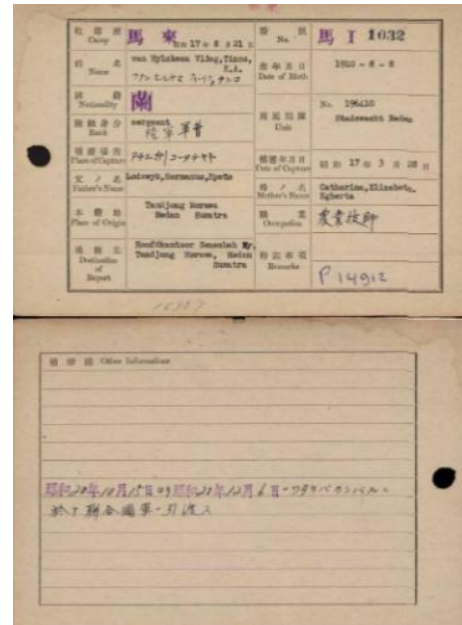 收容所 Camp 馬來 昭和 17年 8月 21日
番號 No. 馬 I 1032
姓名 Name van Hylckama Vlieg, Tinco, E.A.
生年月日 Date of Birth 1910 - 8 - 8
國籍 Nationality 蘭
階級身分 Rank sergeant 陸軍軍曹
所屬部隊 Unit No. 196410 Stadswacht Medan
捕獲場所 Place of Capture
捕獲年月日 Date of Capture 昭和 17年 3月 28日
父ノ名 Father's Name Lodewyk, Hermannus,
母ノ名 Mother's Name Catharina, Elisabeth, Egberta
本籍地 Place of Origin Tandjong Morawa Medan Sumatra
職業 Occupation 農業技師
通報先 Destination of Report Hoofdkantoor Senembah My. Tandjong Morawa, Medan Sumatra
特記事項 Remarks P 14912
Other Information
昭和20年10月15日 昭和20年12月6日
於テ聯合國軍ニ引渡ス